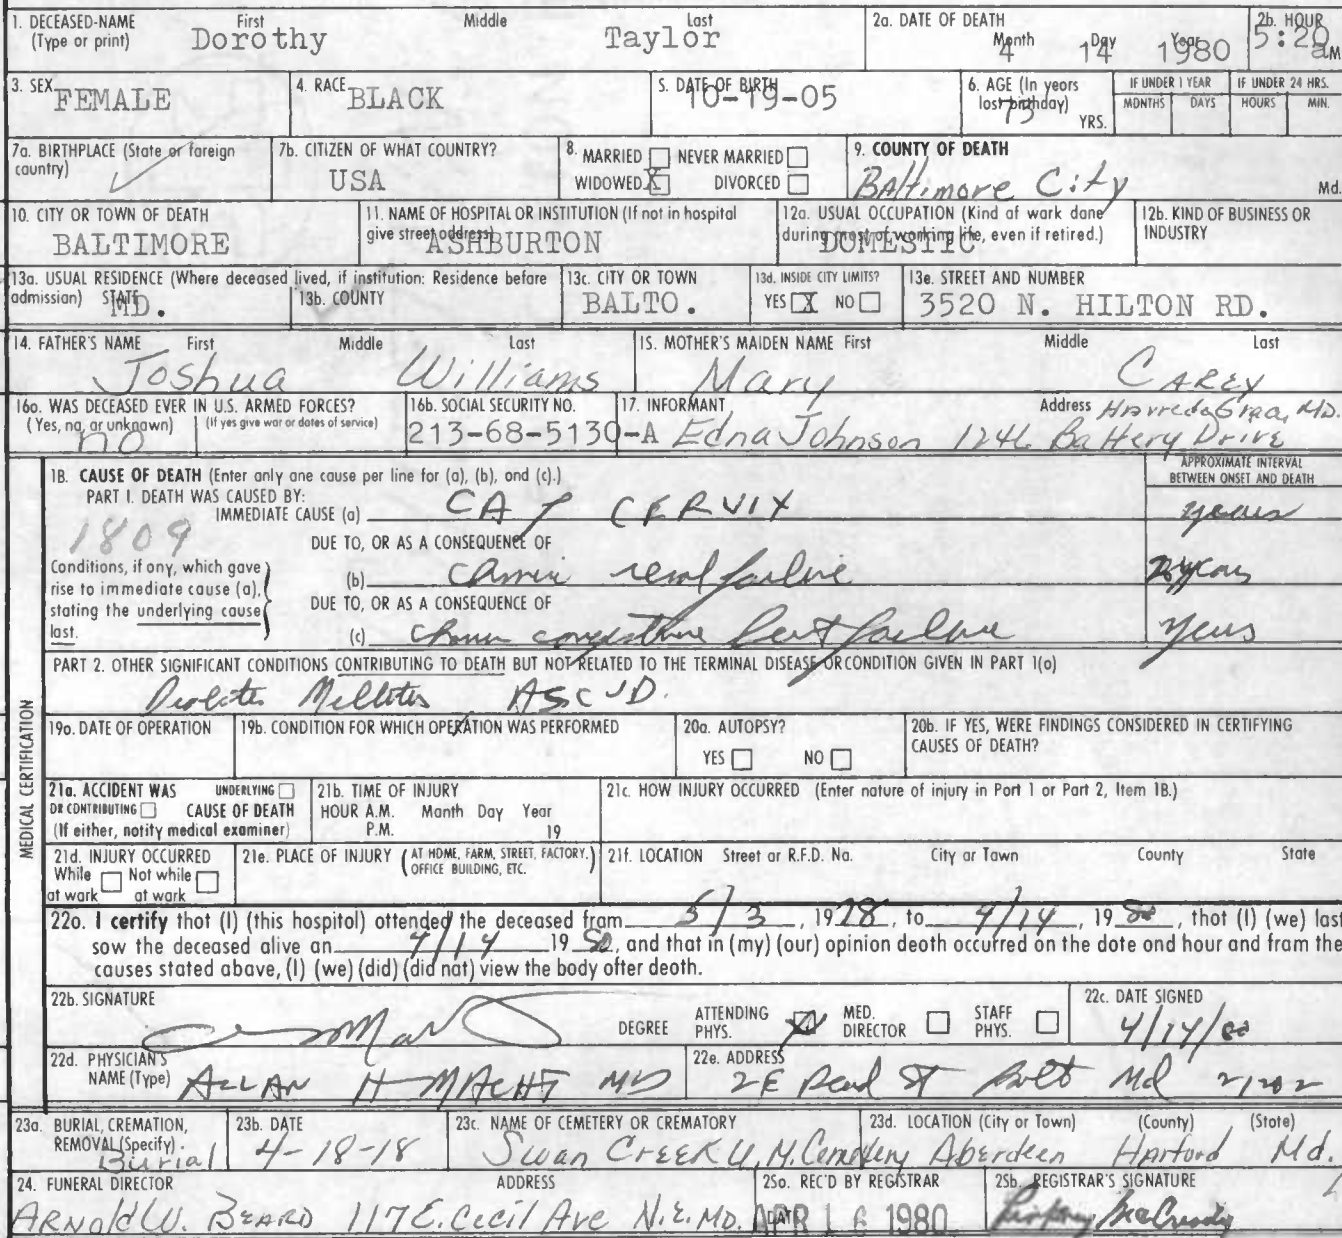 1. DECEASED-NAME (Type or print) First Dorothy Middle Last Taylor 2a. DATE OF DEATH Month 4 Day 14 Year 1980 2b. HOUR 5:20 a M
3. SEX FEMALE 4. RACE BLACK 5. DATE OF BIRTH 10-19-05 6. AGE (In years last birthday) YRS. IF UNDER 1 YEAR MONTHS DAYS IF UNDER 24 HRS. HOURS MIN.
7a. BIRTHPLACE (State or foreign country) 7b. CITIZEN OF WHAT COUNTRY? USA 8. MARRIED NEVER MARRIED WIDOWED X DIVORCED 9. COUNTY OF DEATH BAltimore City Md.
10. CITY OR TOWN OF DEATH BALTIMORE 11. NAME OF HOSPITAL OR INSTITUTION (If not in hospital give street address) ASHBURTON 12a. USUAL OCCUPATION (Kind of work done during most of working life, even if retired.) DOMESTIC 12b. KIND OF BUSINESS OR INDUSTRY
13a. USUAL RESIDENCE (Where deceased lived, if institution: Residence before admission) STATE MD. 13b. COUNTY 13c. CITY OR TOWN BALTO. 13d. INSIDE CITY LIMITS? YES X NO 13e. STREET AND NUMBER 3520 N. HILTON RD.
14. FATHER'S NAME First Middle Last Joshua Williams 15. MOTHER'S MAIDEN NAME First Middle Last Mary CAREY
16a. WAS DECEASED EVER IN U.S. ARMED FORCES? (Yes, no, or unknown) (If yes give war or dates of service) no 16b. SOCIAL SECURITY NO. 213-68-5130-A 17. INFORMANT Edna Johnson Address 1246 Battery Drive MD.
18. CAUSE OF DEATH (Enter only one cause per line for (a), (b), and (c).) APPROXIMATE INTERVAL BETWEEN ONSET AND DEATH
PART I. DEATH WAS CAUSED BY:
IMMEDIATE CAUSE (a) CA CERVIX years
1809
DUE TO, OR AS A CONSEQUENCE OF
Conditions, if any, which gave rise to immediate cause (a), stating the underlying cause last.
(b) chronic renal failure years
DUE TO, OR AS A CONSEQUENCE OF
(c) chronic congestive heart failure years
PART 2. OTHER SIGNIFICANT CONDITIONS CONTRIBUTING TO DEATH BUT NOT RELATED TO THE TERMINAL DISEASE OR CONDITION GIVEN IN PART 1(a)
Diabetes Mellitus ASCVD.
MEDICAL CERTIFICATION
19a. DATE OF OPERATION 19b. CONDITION FOR WHICH OPERATION WAS PERFORMED 20a. AUTOPSY? YES NO 20b. IF YES, WERE FINDINGS CONSIDERED IN CERTIFYING CAUSES OF DEATH?
21a. ACCIDENT WAS UNDERLYING OR CONTRIBUTING CAUSE OF DEATH (If either, notify medical examiner) 21b. TIME OF INJURY HOUR A.M. Month Day Year P.M. 19 21c. HOW INJURY OCCURRED (Enter nature of injury in Part 1 or Part 2, Item 18.)
21d. INJURY OCCURRED While at work Not while at work 21e. PLACE OF INJURY (AT HOME, FARM, STREET, FACTORY, OFFICE BUILDING, ETC. 21f. LOCATION Street or R.F.D. No. City or Town County State
22a. I certify that (I) (this hospital) attended the deceased from 5/3, 1978, to 4/14, 19 80, that (I) (we) last
saw the deceased alive on 4/14 19 80, and that in (my) (our) opinion death occurred on the date and hour and from the
causes stated above, (I) (we) (did) (did not) view the body after death.
22b. SIGNATURE DEGREE ATTENDING PHYS. X MED. DIRECTOR STAFF PHYS. 22c. DATE SIGNED 4/14/80
22d. PHYSICIAN'S NAME (Type) ALLAN H MACHT MD 22e. ADDRESS 2 E Read ST Balt Md 21202
23a. BURIAL, CREMATION, REMOVAL (Specify) Burial 23b. DATE 4-18-18 23c. NAME OF CEMETERY OR CREMATORY Swan CREEK U.M. Cemetery 23d. LOCATION (City or Town) (County) (State) Aberdeen Harford Md.
24. FUNERAL DIRECTOR ADDRESS ARNold W. BEARD 117 E. Cecil Ave N.E. MD. 25a. REC'D BY REGISTRAR DATE APR 16 1980 25b. REGISTRAR'S SIGNATURE